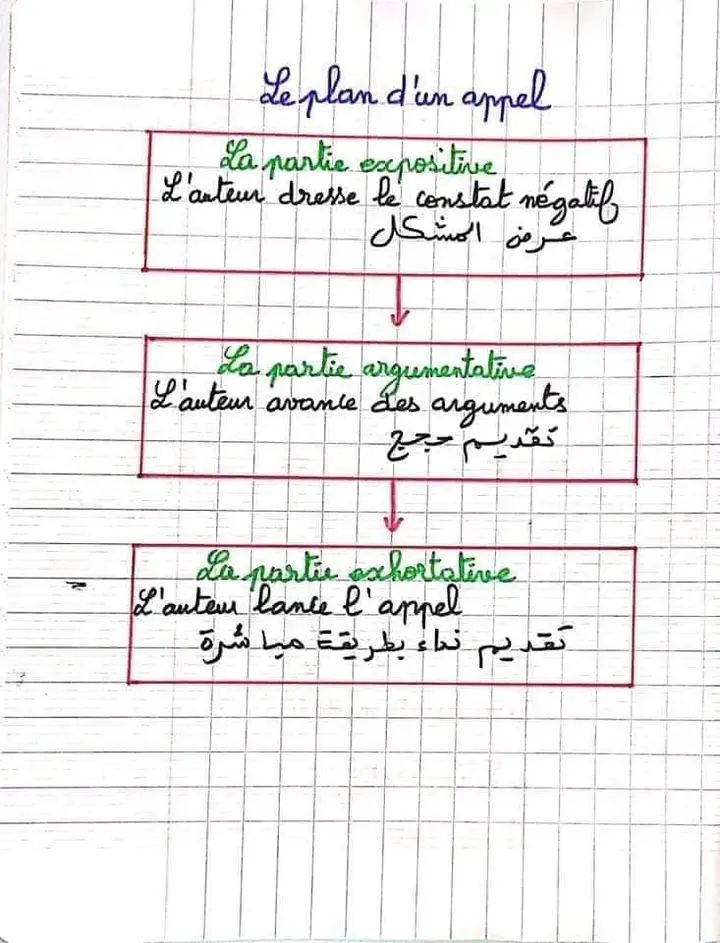 Le plan d'un appel
La partie expositive
L'auteur dresse le constat négatif
عرض المشكل
La partie argumentative
L'auteur avance des arguments
تقديم حجج
La partie exhortative
L'auteur lance l'appel
تقديم نداء بطريقة مباشرة